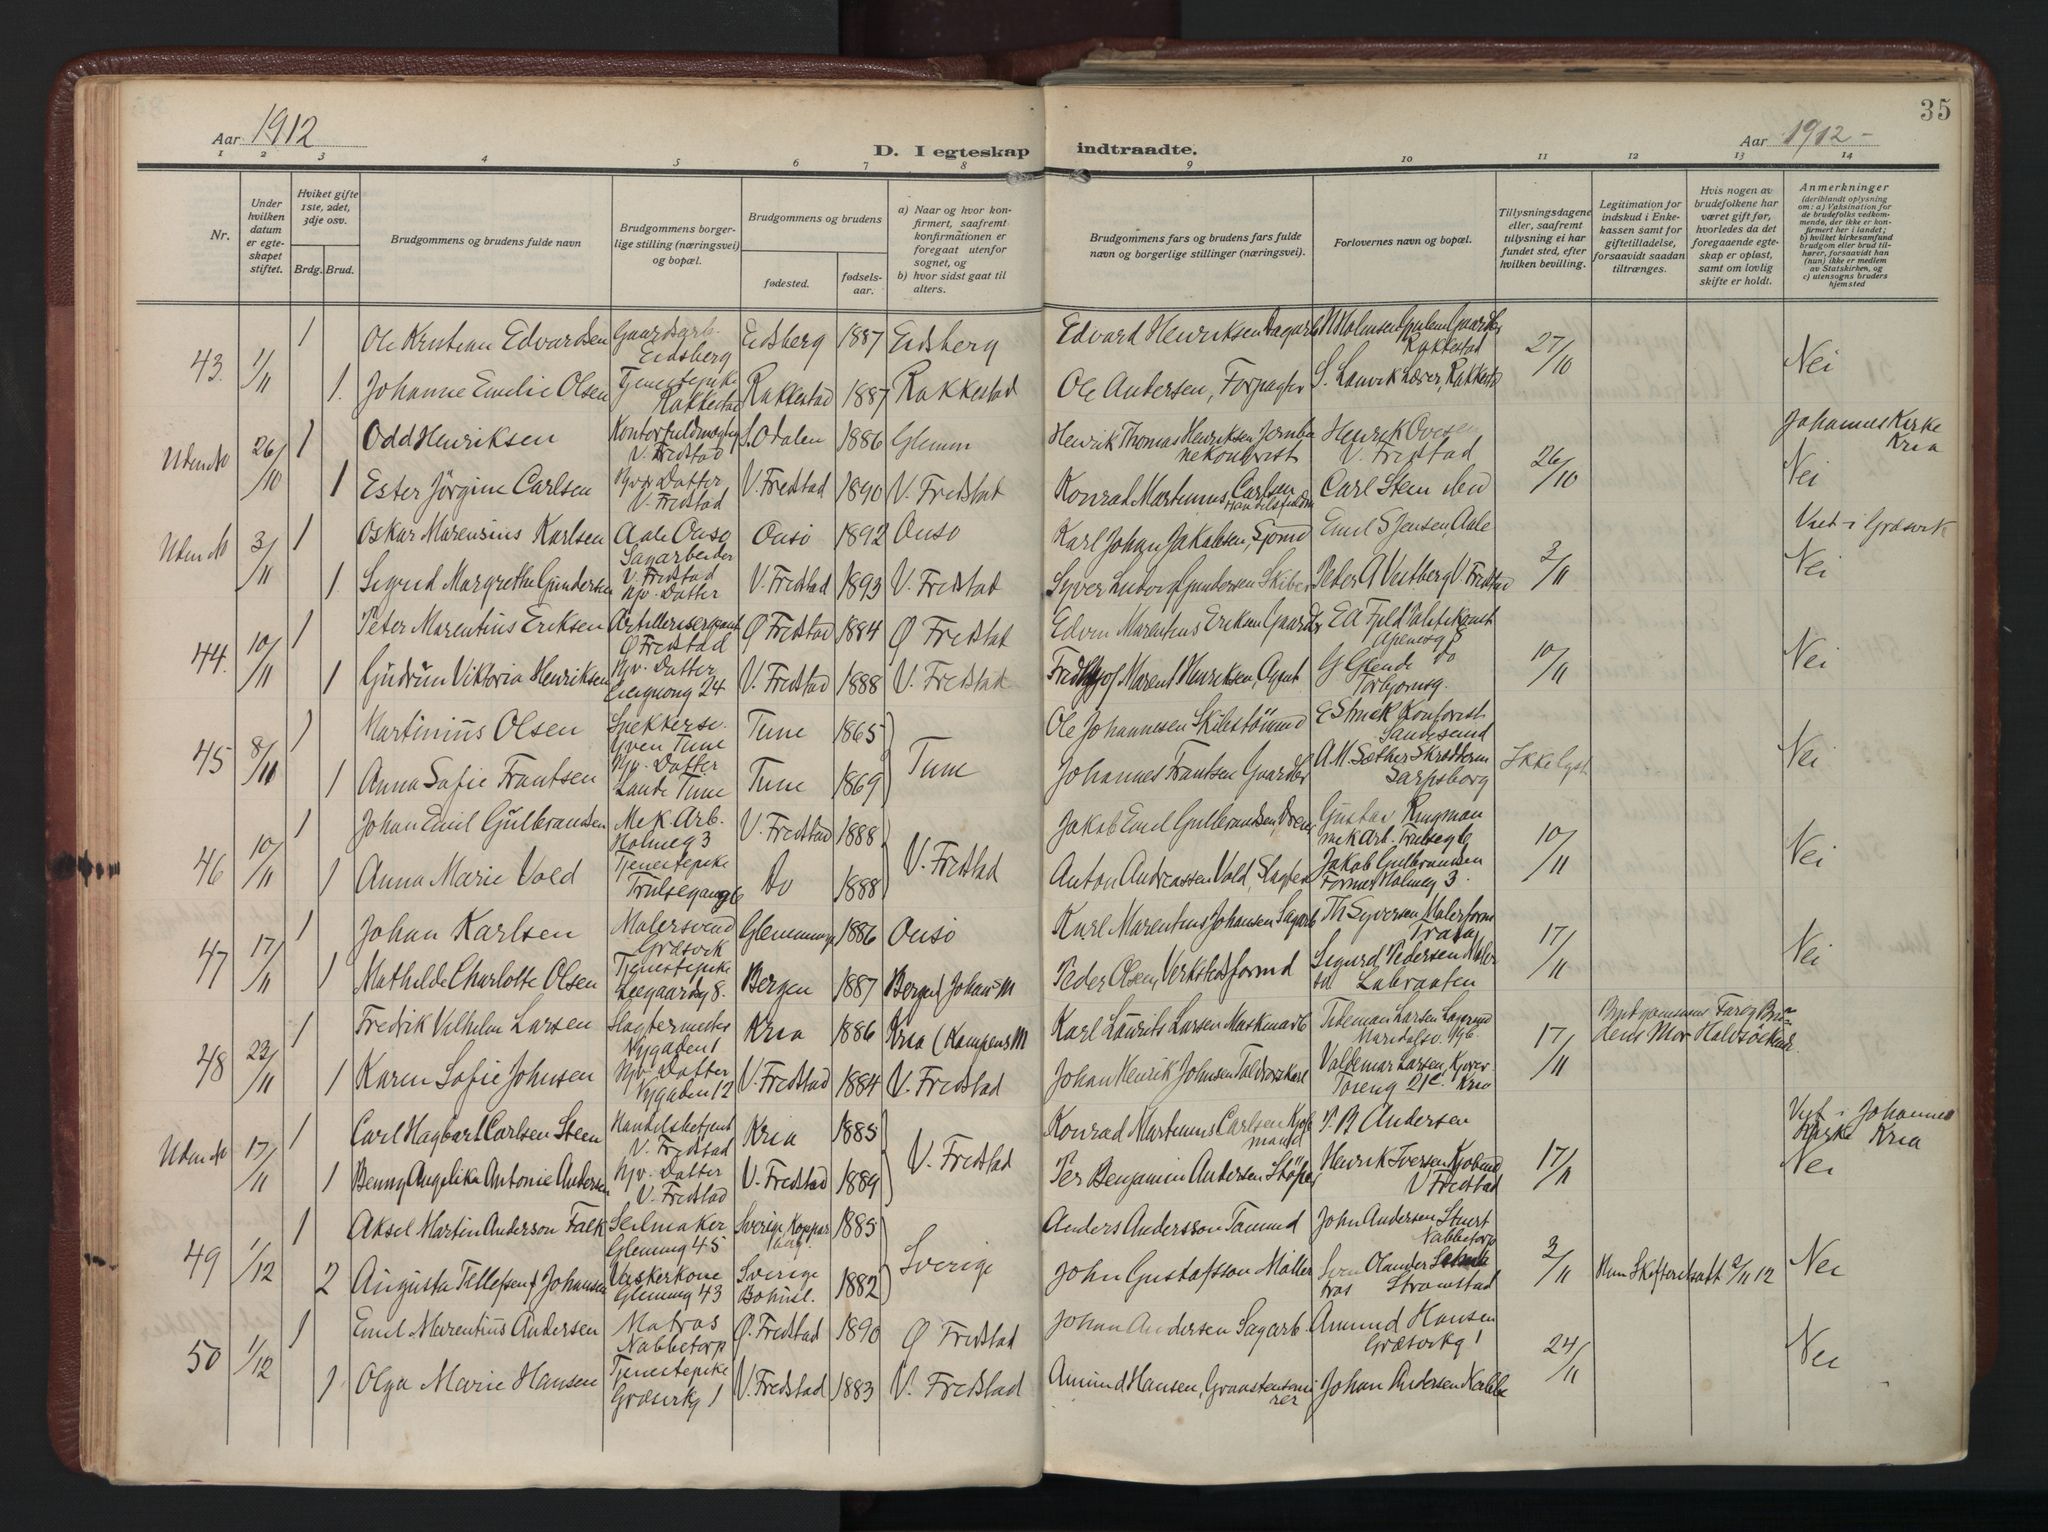 35
Aar 1912
Aar 1912
D. I egteskap indtraadte.
1 2 3 4 5 6 7 8 9 10 11 12 13 14
Nr.
Under hvilken datum er egteskapet stiftet.
Hvilket gifte 1ste, 2det, 3dje osv.
Brdg. Brud.
Brudgommens og brudens fulde navn
Brudgommens borgerlige stilling (næringsvei) og bopæl.
Brudgommens og brudens
fødested.
fødselsaar.
a) Naar og hvor konfirmert, saafremt konfirmationen er foregaat utenfor sognet, og
b) hvor sidst gaat til alters.
Brudgommens fars og brudens fars fulde navn og borgerlige stillinger (næringsvei).
Forlovernes navn og bopæl.
Tillysningsdagene eller, saafremt tillysning ei har fundet sted, efter hvilken bevilling.
Legitimation for indskud i Enkekassen samt for giftetilladelse, forsaavidt saadan tiltrænges.
Hvis nogen av brudefolkene har været gift før, hvorledes da det foregaaende egteskap er opløst, samt om lovlig skifte er holdt.
Anmerkninger (deriblandt oplysning om: a) Vaksination for de brudefolks vedkommende, der ikke er konfirmert her i landet; b) hvilket kirkesamfund brudgom eller brud tilhører, forsaavidt han (hun) ikke er medlem av Statskirken, og c) utensogns bruders hjemsted
43. 1/11 1 Ole Kristian Edvardsen Gaardsarb. Eidsberg Eidsberg 1887 Eidsberg Edvard Henriksen Dagarb Rakkestad 27/10 Nei
1. Johanne Emilie Olsen Tjenestepike Rakkestad Rakkestad 1887 Rakkestad Ole Andersen, Forpagter S. Lanvik Lærer, Rakkestad
Uden No 26/10 1 Odd Henriksen Kontorfuldmægtig V. Fredstad S. Odalen 1886 Glemm Henrik Thomas Henriksen Jernbanekontorist Henrik Ovesen V. Fredstad 26/10 Johannes Kirke Kria Nei
1 Ester Jörgine Carlsen Hjv. Datter V. Fredstad V. Fredstad 1890 V. Fredstad Konrad Martinius Carlsen Carl Steen ibid
Uden No 3/11 1 Oskar Marensius Karlsen Aale Onsø Sagarbeider Onsø 1892 Onsø Karl Johan Jakobsen, Sjømd Emil S Jensen, Aale 3/11 Viet i Græsvik Nei
1 Sigrid Margrethe Gundersen V. Fredstad Hjv. Datter V. Fredstad 1893 V. Fredstad Syver Ludvig Gundersen Skiber Peter A Vestberg V. Fredstad
44. 10/11 1 Peter Marentius Eriksen Artillerisersjant Ø Fredstad Ø Fredstad 1884 Ø Fredstad Edvin Marentius Eriksen Gaardbr E A Fjeld Politikonst 10/11 Nei
1 Gudrun Viktoria Henriksen Hjv. Datter 24 V. Fredstad 1888 V. Fredstad Fredthjof Marent Henriksen, Agent G Gjende do Torbjornsg.
45 8/11 1 Martinius Olsen Yven Tune Tune 1865 Tune Ole Johannesen Skibstömmd E Struck Kontorist Sandesund Ikke lyst Nei
1 Anna Sofie Frantsen Hjv. Datter Lande Tune Tune 1869 Johannes Frantsen Gaardbr A. M. Sæther Skrædderm Sarpsborg
46 10/11 1 Johan Emil Gulbrandsen Mek Arb. Holmeg 3 V. Fredstad 1888 V. Fredstad Jakob Emil Gulbrandsen, Gustav Ringman mek Arb. Trulsegt 6 10/11 Nei
1 Anna Marie Vold Tjenestepike Trulsegangt 6 Do 1888 Anton Andreassen Vold, Slagter Jakob Gulbransen Former Holmeg 3.
47 17/11 1 Johan Karlsen Malersvend Græsvik Glemminge 1886 Onsø Karl Marentius Johansen Sagarb Th Syversen Malerform Trara 17/11 Nei
1 Mathilde Charlotte Olsen Tjenestepike 8. Bergen 1887 Bergen (Johan M Peder Olsen, Verkstedsformd Sigurd Pedersen Maler Labraaten
48 23/11 1 Fredrik Vilhelm Larsen Slagtermester Nygaden 1 Kria 1886 Kria (Kampens M Karl Laurits Larsen Maskinarb Tideman Larsen Maridalsv. 17/11 Brudgommens Far og Brudens Mor Halvsöskende.
1 Karen Sofie Johnsen Hjv. Datter Nygaden 12 V. Fredstad 1884 V. Fredstad Johan Henrik Johnsen Toldvagtkarl Valdemar Larsen, Toieng 21c. Kria
Uden No 17/11 1 Carl Hagbart Carlsen Steen Handelsbetjent V. Fredstad Kria 1885 V. Fredstad Konrad Martinius Carlsen Kjøbmand P. B Andersen 17/11 Viet i Johannes Kirke Kria Nei
1 Benny Angelika Antonie Andersen Hjv. Datter V. Fredstad V. Fredstad 1889 Per Benjamin Andersen Henrik Iversen Kjøbmd V Fredstad
49 1/12 1 Aksel Martin Anderson Falk Seilmaker Glemmg 45 Sverige 1885 Sverige Anders Andersson Tømmd John Andersen Stuert Nabbetorp 3/11 Hun Skifteretsatt 2/11 12 Nei
2 Augusta Tellefsen f Johansen Vaskerkone Glemmg 43 Sverige Bohusl. 1882 John Gustafsson Møller Sven Olander Matros Strømstad
50 1/12 1 Emil Marentius Andersen Matros Nabbetorp Ø. Fredstad 1890 Ø Fredstad Johan Andersen Sagarb. Amund Hansen Græsvikg 1 24/11 Nei
1 Olga Marie Hansen Tjenestepike Græsvikg 1 V. Fredstad 1883 V. Fredstad Amund Hansen, Graastensmurer Johan Andersen